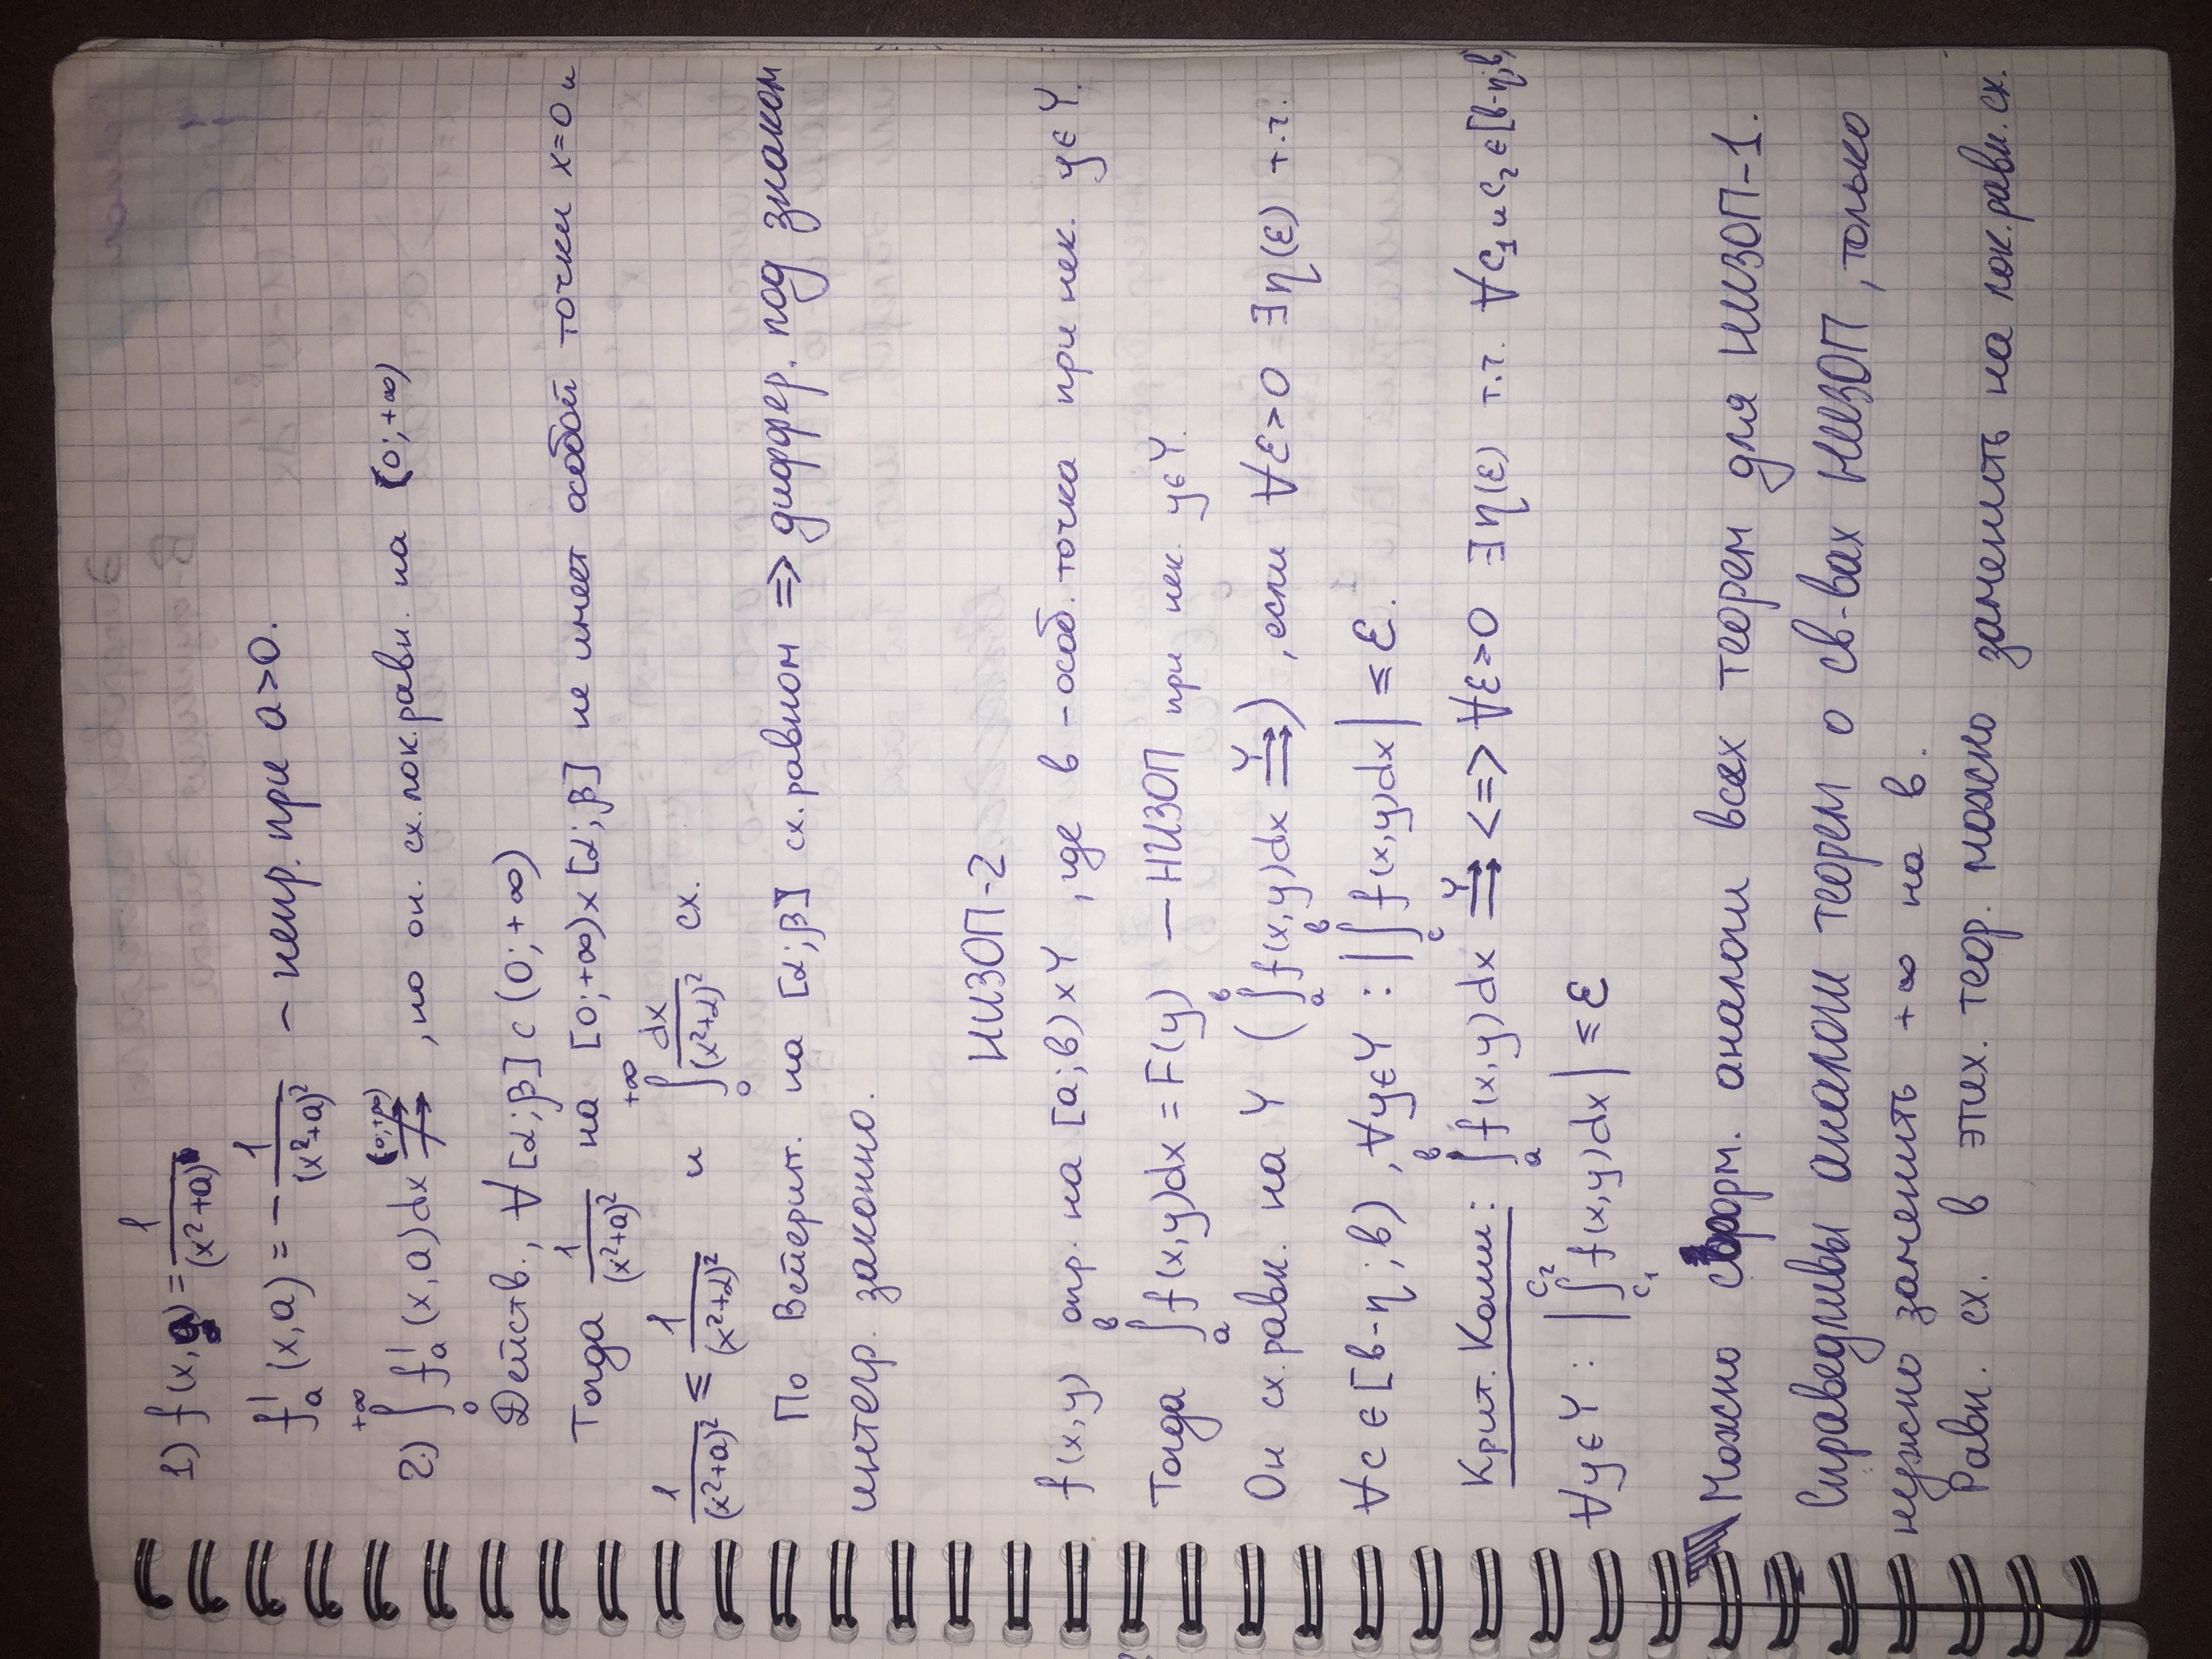 1) f(x,a) = 1/(x²+a)
f'ₐ(x,a) = - 1/(x²+a)² – непр. при a>0.
2.) ∫₀^{+∞} f'ₐ(x,a)dx ⇉̸^{(0;+∞)}, но он. сх. лок. равн. на (0;+∞)
Действ., ∀[α;β]⊂(0;+∞)
Тогда 1/(x²+a)² на [0;+∞)x[α;β] не имеет особой точки x=0 и
1/(x²+a)² ≤ 1/(x²+α)² и ∫₀^{+∞} dx/(x²+α)² сх.
По Вейершт. на [α;β] сх. равном => диффер. под знаком
интегр. законно.
НИЗОП-2
f(x,y) опр. на [a;в)xY, где в – особ. точка при нек. y∈Y.
Тогда ∫ₐ^в f(x,y)dx = F(y) — НИЗОП при нек. y∈Y.
Он сх. равн. на Y (∫ₐ^в f(x,y)dx ⇉^Y), если ∀ε>0 ∃η(ε) т.ч.
∀c∈[в-η;в), ∀y∈Y : |∫_c^в f(x,y)dx| ≤ ε.
Крит. Коши: ∫ₐ^в f(x,y)dx ⇉^Y <=> ∀ε>0 ∃η(ε) т.ч. ∀c₁ и c₂∈[в-η;в)
∀y∈Y : |∫_{c₁}^{c₂} f(x,y)dx| ≤ ε
Можно сформ. аналоги всех теорем для НИЗОП-1.
Справедливы аналоги теорем о св-вах НИЗОП, только
нужно заменить +∞ на в.
Равн. сх. в этих. теор. можно заменить на лок. равн. сх.